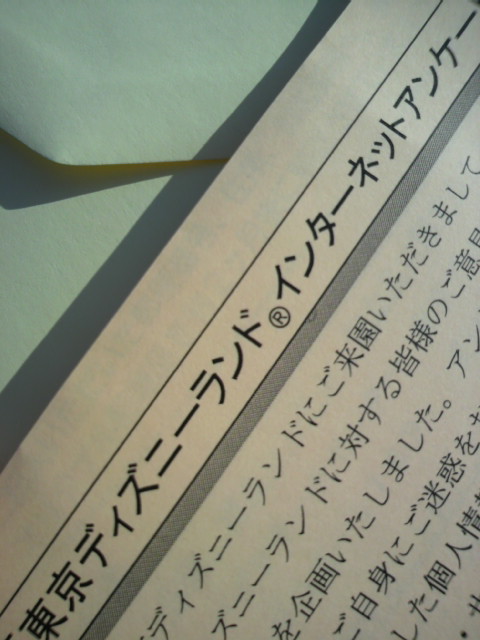 東京ディズニーランド®インターネットアンケー
ディズニーランドにご来園いただきまして
ズニーランドに対する皆様のご意見
を企画いたしました。アン
ご自身にご迷惑を
した個人情